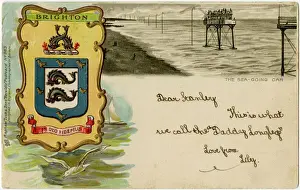 BRIGHTON
THE SEA-GOING CAR
Dear Stanley
This is what
we call the "Daddy Longlegs"
Love from
Lily